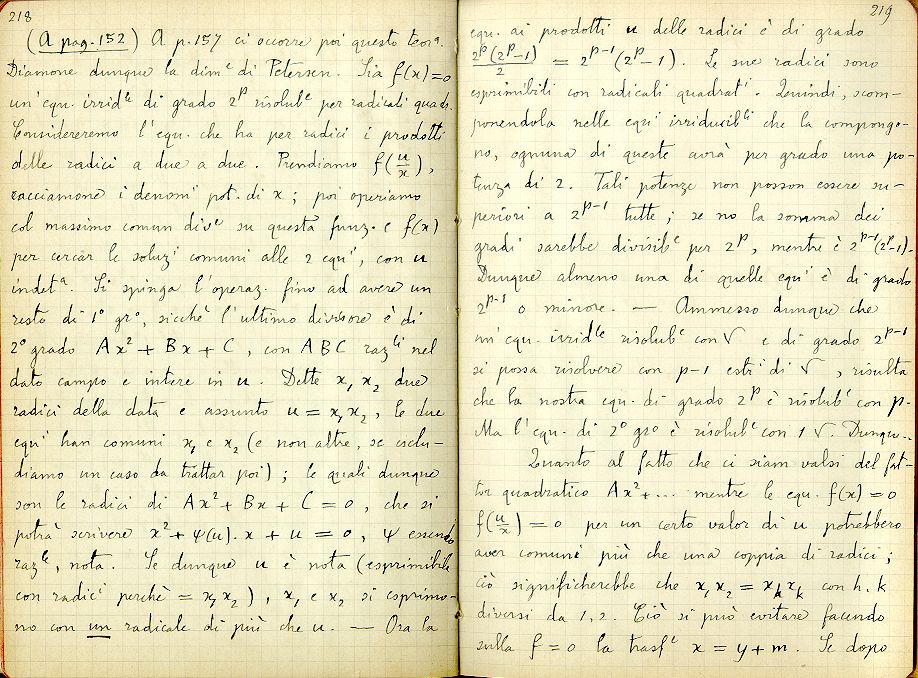 218
(A pag. 152) A p. 157 ci occorre poi questo teorª.
Diamone dunque la dimᵉ di Petersen. Sia f(x)=0
un'equ. irridˡᵉ di grado 2ᵖ risolubᵉ per radicali quad.
Considereremo l'equ. che ha per radici i prodotti
delle radici a due a due. Prendiamo f(u/x),
cacciamone i denomⁱ pot. di x; poi operiamo
col massimo comun divᵉ su questa funz.ᵉ e f(x)
per cercar le soluzⁱ comuni alle 2 equⁱ, con u
indetª. Si spinga l'operaz. fino ad avere un
resto di 1º grº, sicchè l'ultimo divisore è di
2º grado Ax² + Bx + C, con A B C razˡⁱ nel
dato campo e intere in u. Dette x₁ x₂ due
radici della data e assunto u = x₁x₂, le due
equⁱ han comuni x₁ e x₂ (e non altre, se esclu-
diamo un caso da trattar poi); le quali dunque
son le radici di Ax² + Bx + C = 0, che si
potrà scrivere x² + ψ(u).x + u = 0, ψ essendo
razˡᵉ, nota. Se dunque u è nota (esprimibile
con radicⁱ perchè = x₁x₂), x₁ e x₂ si esprimo-
no con un radicale di più che u. — Ora la
219
equ. ai prodotti u delle radici è di grado
2ᵖ(2ᵖ-1)/2 = 2ᵖ⁻¹(2ᵖ-1). Le sue radici sono
esprimibili con radicali quadratⁱ. Quindi, scom-
ponendola nelle equⁱ irriducibˡⁱ che la compongo-
no, ognuna di queste avrà per grado una po-
tenza di 2. Tali potenze non posson essere su-
periori a 2ᵖ⁻¹ tutte; se no la somma dei
gradi sarebbe divisibᵉ per 2ᵖ, mentre è 2ᵖ⁻¹(2ᵖ-1).
Dunque almeno una di quelle equⁱ è di grado
2ᵖ⁻¹ o minore. — Ammesso dunque che
un'equ. irridˡᵉ risolubᵉ con √ e di grado 2ᵖ⁻¹
si possa risolvere con p-1 estrⁱ di √, risulta
che la nostra equ. di grado 2ᵖ è risolubᵉ con p.
Ma l'equ. di 2º grº è risolubᵉ con 1 √. Dunque..
Quanto al fatto che ci siam valsi del fat-
tor quadratico Ax²+... mentre le equ. f(x) = 0
f(u/x) = 0 per un certo valor di u potrebbero
aver comuni più che una coppia di radici;
ciò significherebbe che x₁x₂ = xₕxₖ con h, k
diversi da 1, 2. Ciò si può evitare facendo
sulla f = 0 la trasfᵉ x = y + m. Se dopo